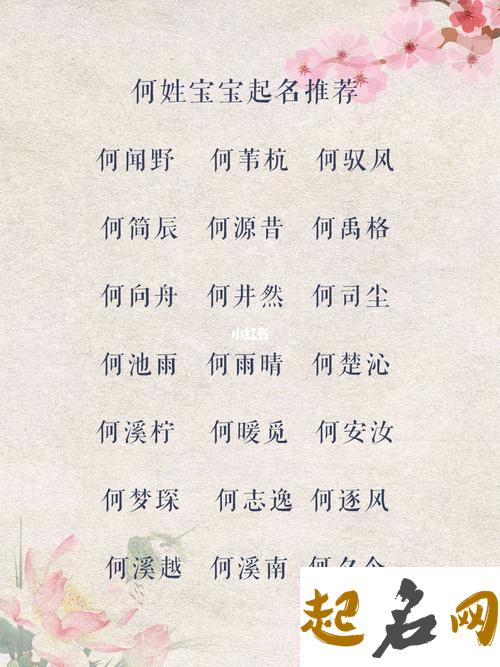 何姓宝宝起名推荐
何闻野 何苇杭 何驭风
何简辰 何源昔 何禹格
何向舟 何井然 何司尘
小红书
何池雨 何雨晴 何楚沁
何溪柠 何暖觅 何安汝
何梦琛 何志逸 何逐风
何溪越 何溪南
起名网